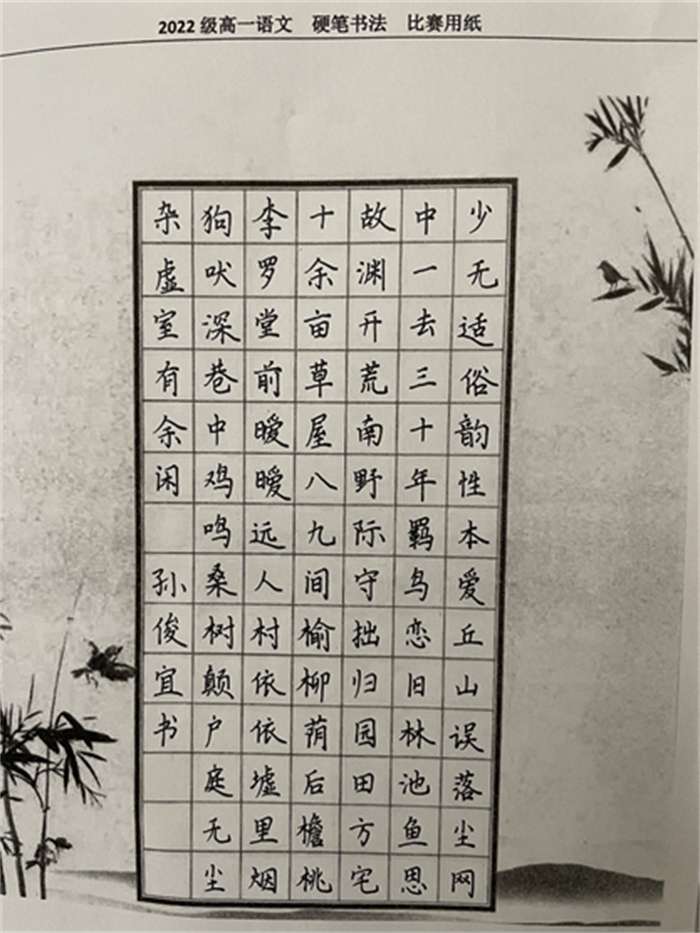 2022 级高一语文 硬笔书法 比赛用纸
少无适俗韵性本爱丘山误落尘网
中一去三十年羁鸟恋旧林池鱼思
故渊开荒南野际守拙归园田方宅
十余亩草屋八九间榆柳荫后檐桃
李罗堂前暧暧远人村依依墟里烟
狗吠深巷中鸡鸣桑树颠户庭无尘
杂虚室有余闲 孙俊宜书